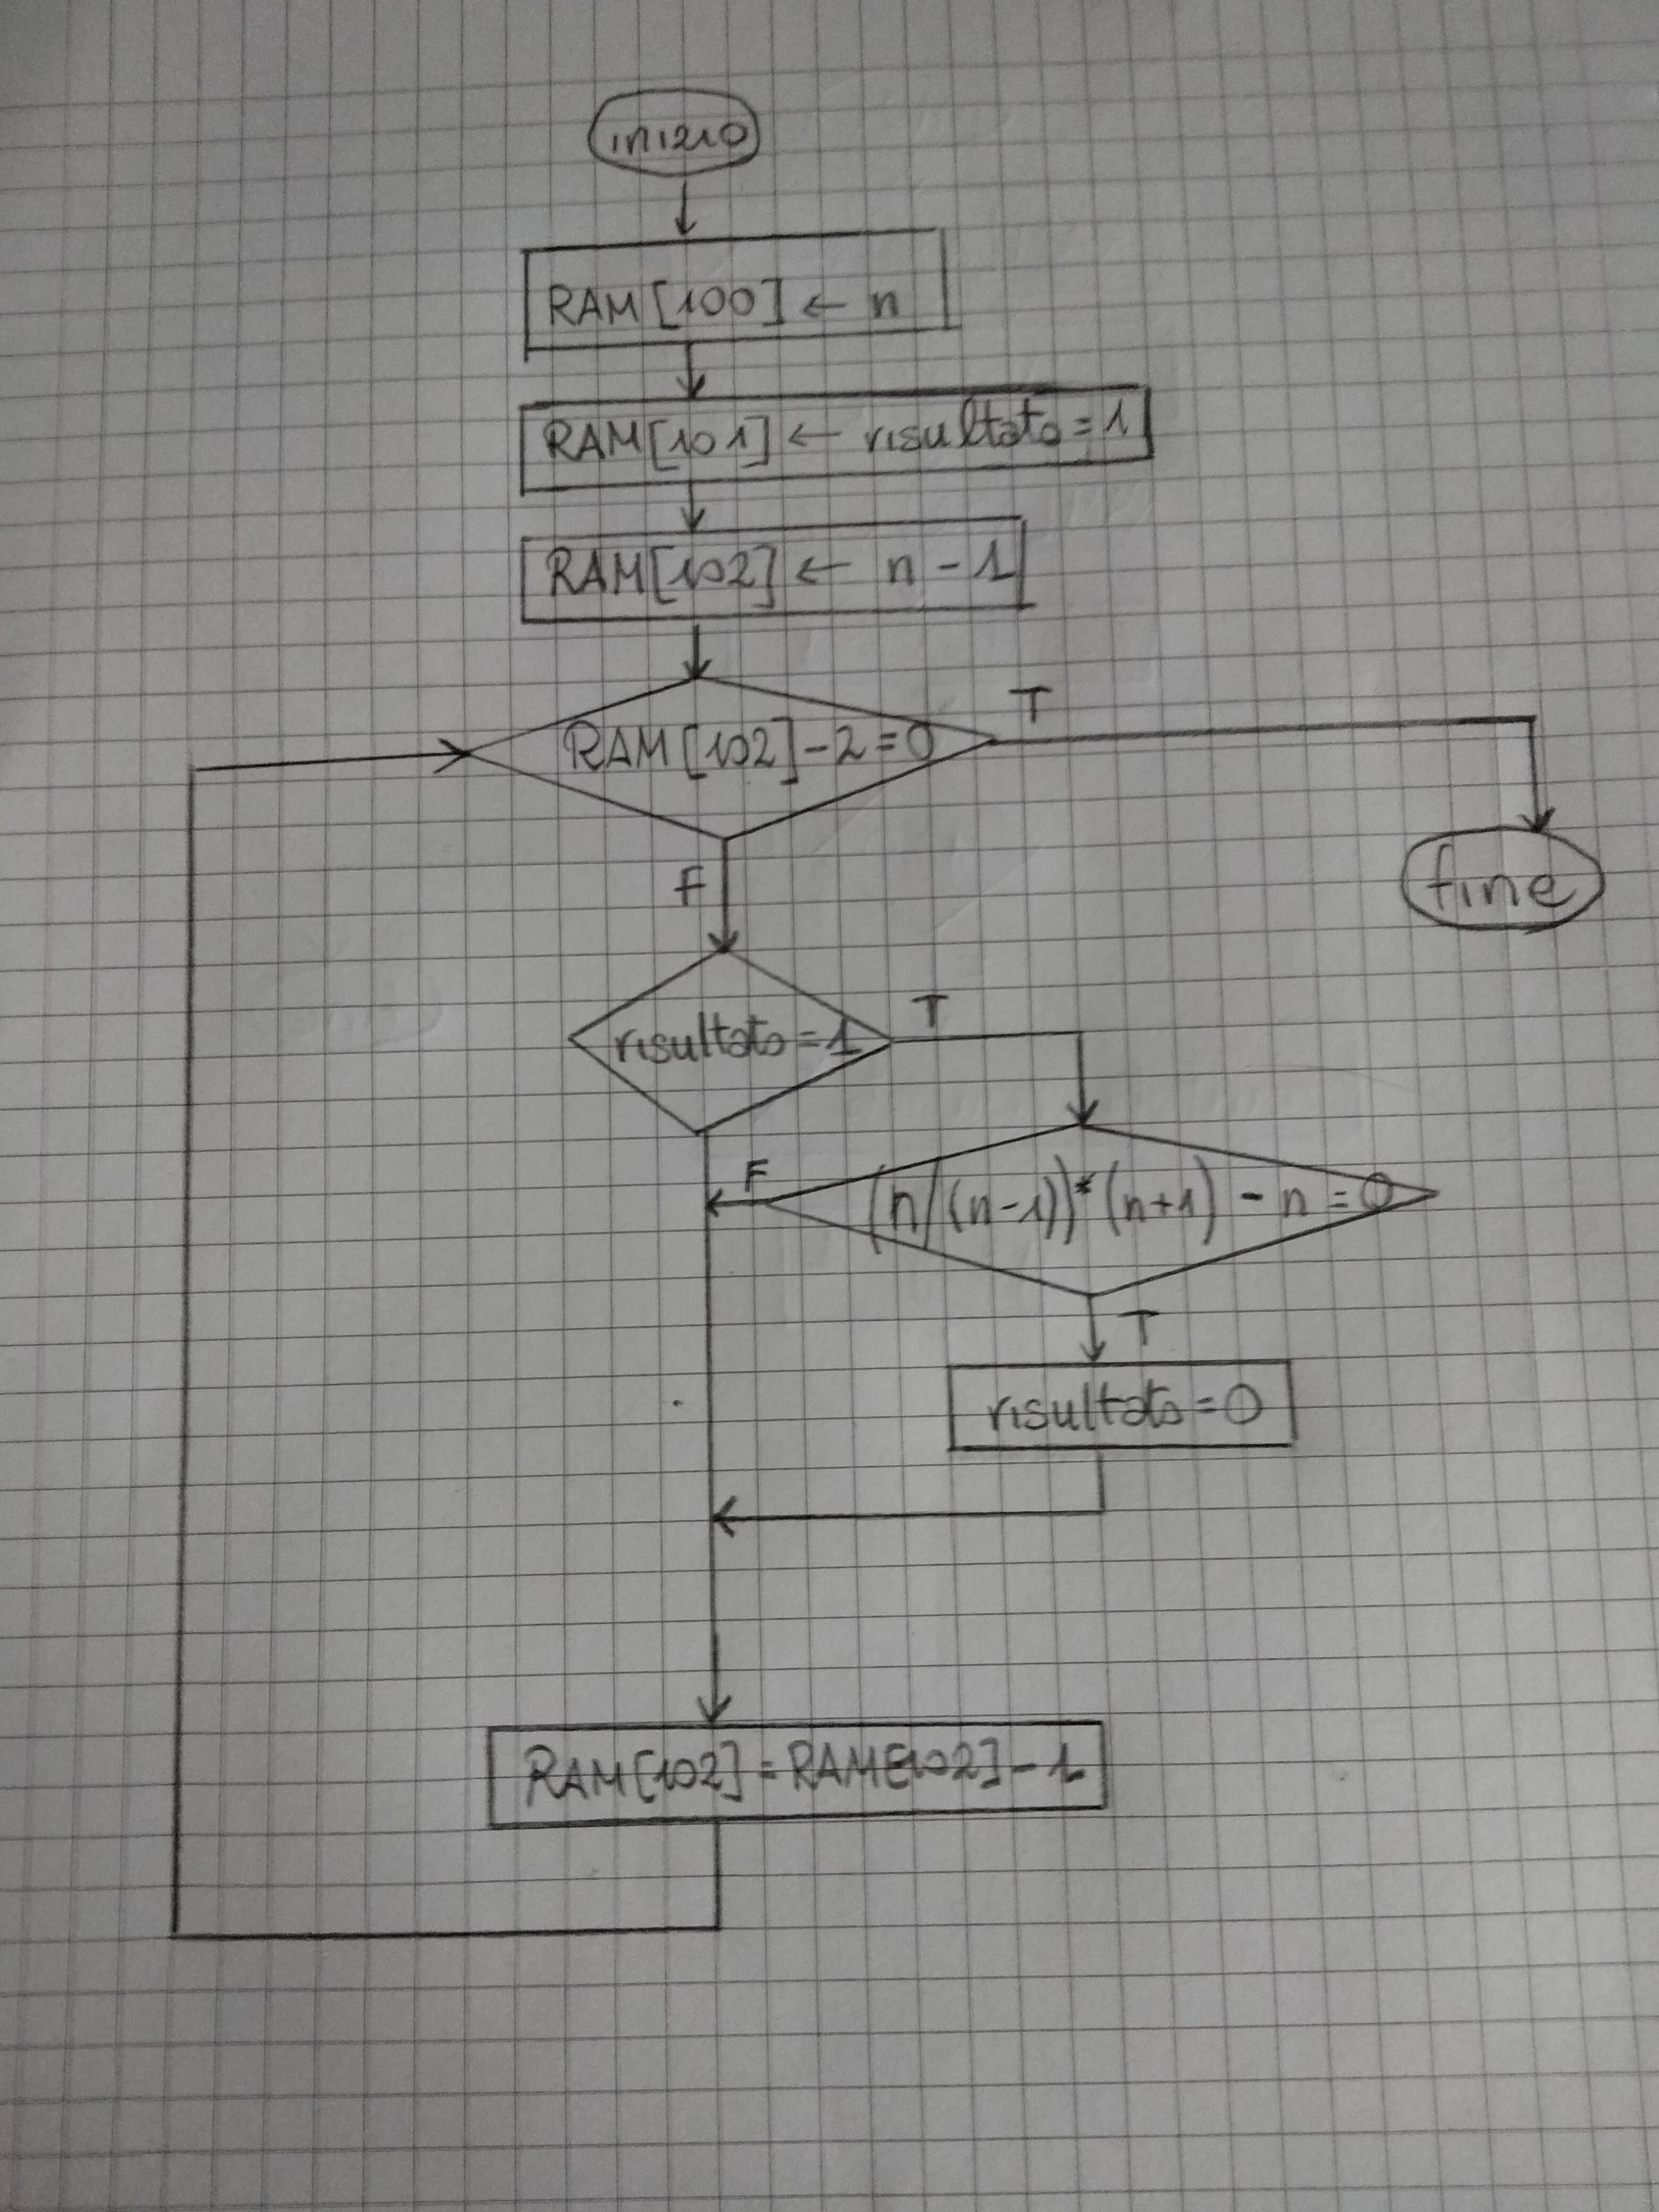 inizio
RAM[100] ← n
RAM[101] ← risultato = 1
RAM[102] ← n - 1
RAM[102] - 2 = 0
T
F
fine
risultato = 1
T
F
(n/(n-1))*(n+1) - n = 0
T
risultato = 0
RAM[102] = RAM[102] - 1